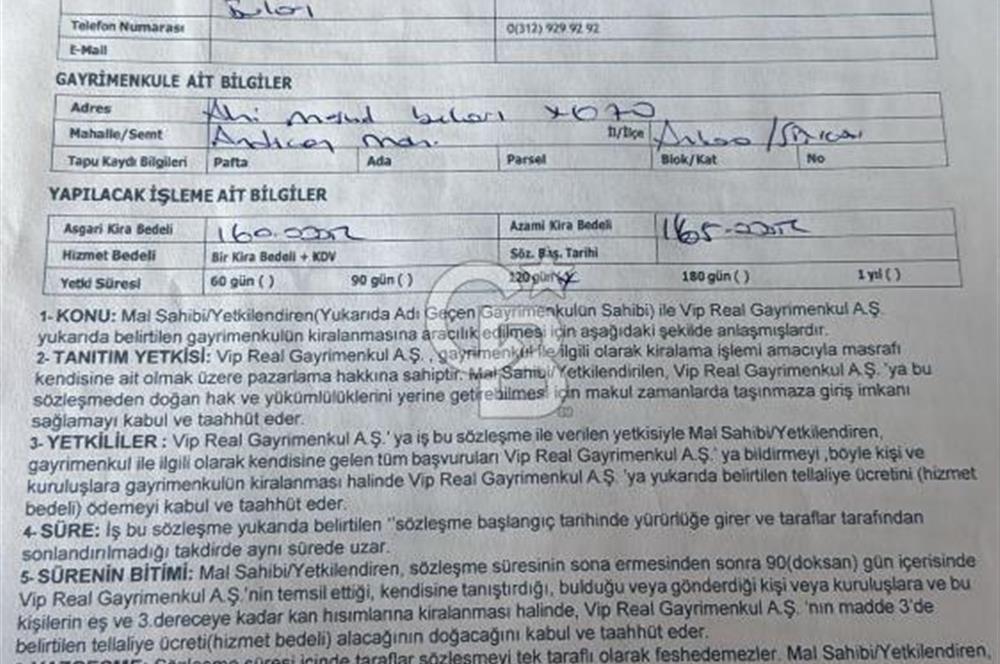 Telefon Numarası 0(312) 929 92 92
E-Mail
GAYRİMENKULE AİT BİLGİLER
Adres
Mahalle/Semt İl/İlçe
Tapu Kaydı Bilgileri Pafta Ada Parsel Blok/Kat No
YAPILACAK İŞLEME AİT BİLGİLER
Asgari Kira Bedeli 160.000TL Azami Kira Bedeli 165.000TL
Hizmet Bedeli Bir Kira Bedeli + KDV Söz. Baş. Tarihi
Yetki Süresi 60 gün ( ) 90 gün ( ) 120 gün 180 gün ( ) 1 yıl ( )
1- KONU: Mal Sahibi/Yetkilendiren(Yukarıda Adı Geçen Gayrimenkulün Sahibi) ile Vip Real Gayrimenkul A.Ş.
yukarıda belirtilen gayrimenkulün kiralanmasına aracılık edilmesi için aşağıdaki şekilde anlaşmışlardır.
2- TANITIM YETKİSİ: Vip Real Gayrimenkul A.Ş. , gayrimenkul ile ilgili olarak kiralama işlemi amacıyla masrafı
kendisine ait olmak üzere pazarlama hakkına sahiptir. Mal Sahibi/Yetkilendirilen, Vip Real Gayrimenkul A.Ş. 'ya bu
sözleşmeden doğan hak ve yükümlülüklerini yerine getirebilmesi için makul zamanlarda taşınmaza giriş imkanı
sağlamayı kabul ve taahhüt eder.
3- YETKİLİLER : Vip Real Gayrimenkul A.Ş.' ya iş bu sözleşme ile verilen yetkisiyle Mal Sahibi/Yetkilendiren,
gayrimenkul ile ilgili olarak kendisine gelen tüm başvuruları Vip Real Gayrimenkul A.Ş.' ya bildirmeyi ,böyle kişi ve
kuruluşlara gayrimenkulün kiralanması halinde Vip Real Gayrimenkul A.Ş. 'ya yukarıda belirtilen tellaliye ücretini (hizmet
bedeli) ödemeyi kabul ve taahhüt eder.
4- SÜRE: İş bu sözleşme yukarıda belirtilen ''sözleşme başlangıç tarihinde yürürlüğe girer ve taraflar tarafından
sonlandırılmadığı takdirde aynı sürede uzar.
5- SÜRENİN BİTİMİ: Mal Sahibi/Yetkilendiren, sözleşme süresinin sona ermesinden sonra 90(doksan) gün içerisinde
Vip Real Gayrimenkul A.Ş.'nin temsil ettiği, kendisine tanıştırdığı, bulduğu veya gönderdiği kişi veya kuruluşlara ve bu
kişilerin eş ve 3.dereceye kadar kan hısımlarına kiralanması halinde, Vip Real Gayrimenkul A.Ş. 'nın madde 3'de
belirtilen tellaliye ücreti(hizmet bedeli) alacağının doğacağını kabul ve taahhüt eder.
süresi içinde taraflar sözleşmeyi tek taraflı olarak feshedemezler. Mal Sahibi/Yetkilendiren,